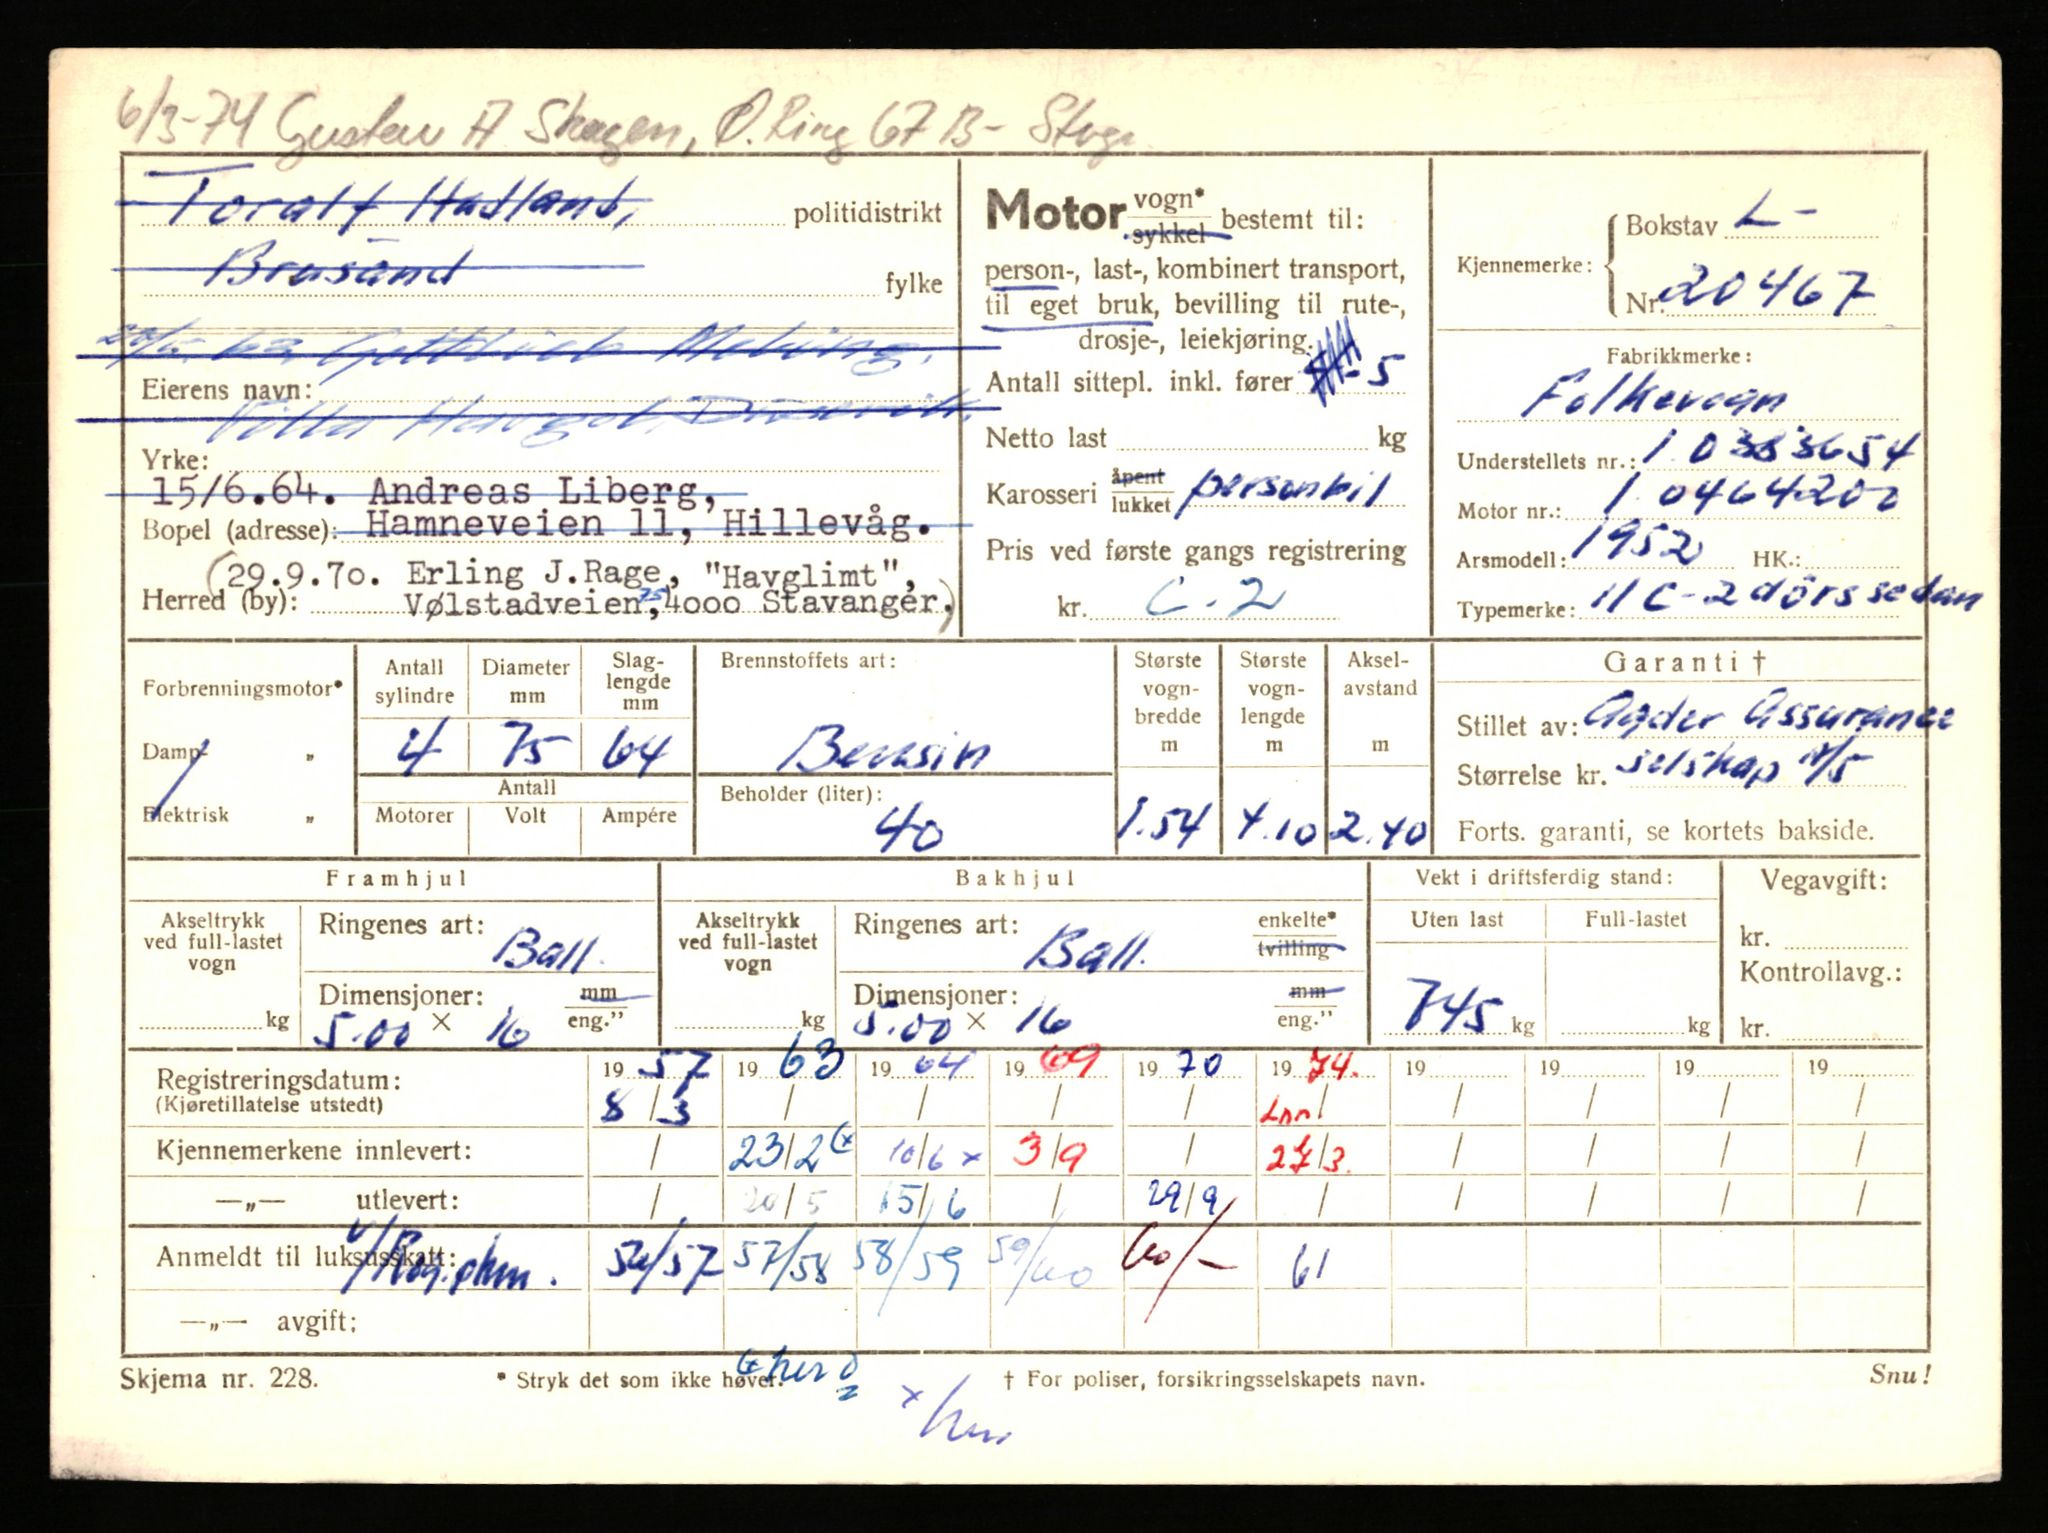 6/3-74 Gustav A Skagen, Ø. Ring 67 B - Stvgr
Toralf Hadland, politidistrikt
Brusand fylke
Gottlieb Meling,
Eierens navn:
Villa Havgol,
Yrke:
15/6.64. Andreas Liberg,
Bopel (adresse): Hamneveien 11, Hillevåg.
(29.9.70. Erling J.Rage, "Havglimt",
Herred (by): Vølstadveien 75, 4000 Stavanger.)
Motor vogn* sykkel bestemt til:
person-, last-, kombinert transport,
til eget bruk, bevilling til rute-,
drosje-, leiekjøring.
Antall sittepl. inkl. fører 5
Netto last kg
Karosseri åpent lukket personbil
Pris ved første gangs registrering
kr. C.2
Kjennemerke: Bokstav L-
Nr. 20467
Fabrikkmerke:
Folkevogn
Understellets nr.: 1 0383654
Motor nr.: 1 0464200
Årsmodell: 1952 HK.:
Typemerke: 11 C - 2 dörs sedan
Forbrenningsmotor*
Damp- „
Elektrisk „
Antall sylindre 4
Diameter mm 75
Slag-lengde mm 64
Antall
Motorer Volt Ampére
Brennstoffets art:
Bensin
Beholder (liter):
40
Største vogn-bredde m 1.54
Største vogn-lengde m 4.10
Aksel-avstand m 2.40
Garanti †
Stillet av: Agder Assuranse
Størrelse kr. selskap A/S
Forts. garanti, se kortets bakside.
Framhjul
Akseltrykk ved full-lastet vogn
kg
Ringenes art:
Ball.
Dimensjoner: mm
5.00 × 16 eng.”
Bakhjul
Akseltrykk ved full-lastet vogn
kg
Ringenes art: enkelte*
Ball. tvilling
Dimensjoner: mm
5.00 × 16 eng.”
Vekt i driftsferdig stand:
Uten last Full-lastet
745 kg kg
Vegavgift:
kr.
Kontrollavg.:
kr.
Registreringsdatum: 19 57 19 63 19 64 19 69 19 70 19 74. 19 19 19 19
(Kjøretillatelse utstedt) 8/3 / / / / Lnn / / / /
Kjennemerkene innlevert: / 23/2 10/6 x 3/9 / 27/3. / / / /
—„— utlevert: / 20/5 15/6 / 29/9 / / / / /
Anmeldt til luksusskatt: 56/57 57/58 58/59 59/60 60/- 61
—„— avgift:
Skjema nr. 228. * Stryk det som ikke høver. † For poliser, forsikringsselskapets navn. Snu!